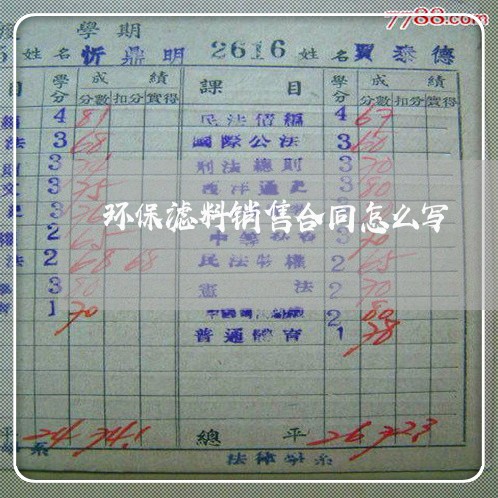 7788.com
學期
姓名 忻鼎明 2616 姓名 賈泰德
目 學分 成績 課目 學分 成績
分數 扣分 實得 分數 扣分 實得
4 81 民法債編 4 67
法 3 68 國際公法 3 60
3 刑法總則 3 70
3 75 西洋通史 3 80
3
2 65 3 70
法 2 68 68 民法物權 2 65
3 80 憲法 2 70
1 70 2 80
普通體育 1 78
環保滤料销售合同怎么写
平 24 74.1 總平 26 72.3
系 法律學系